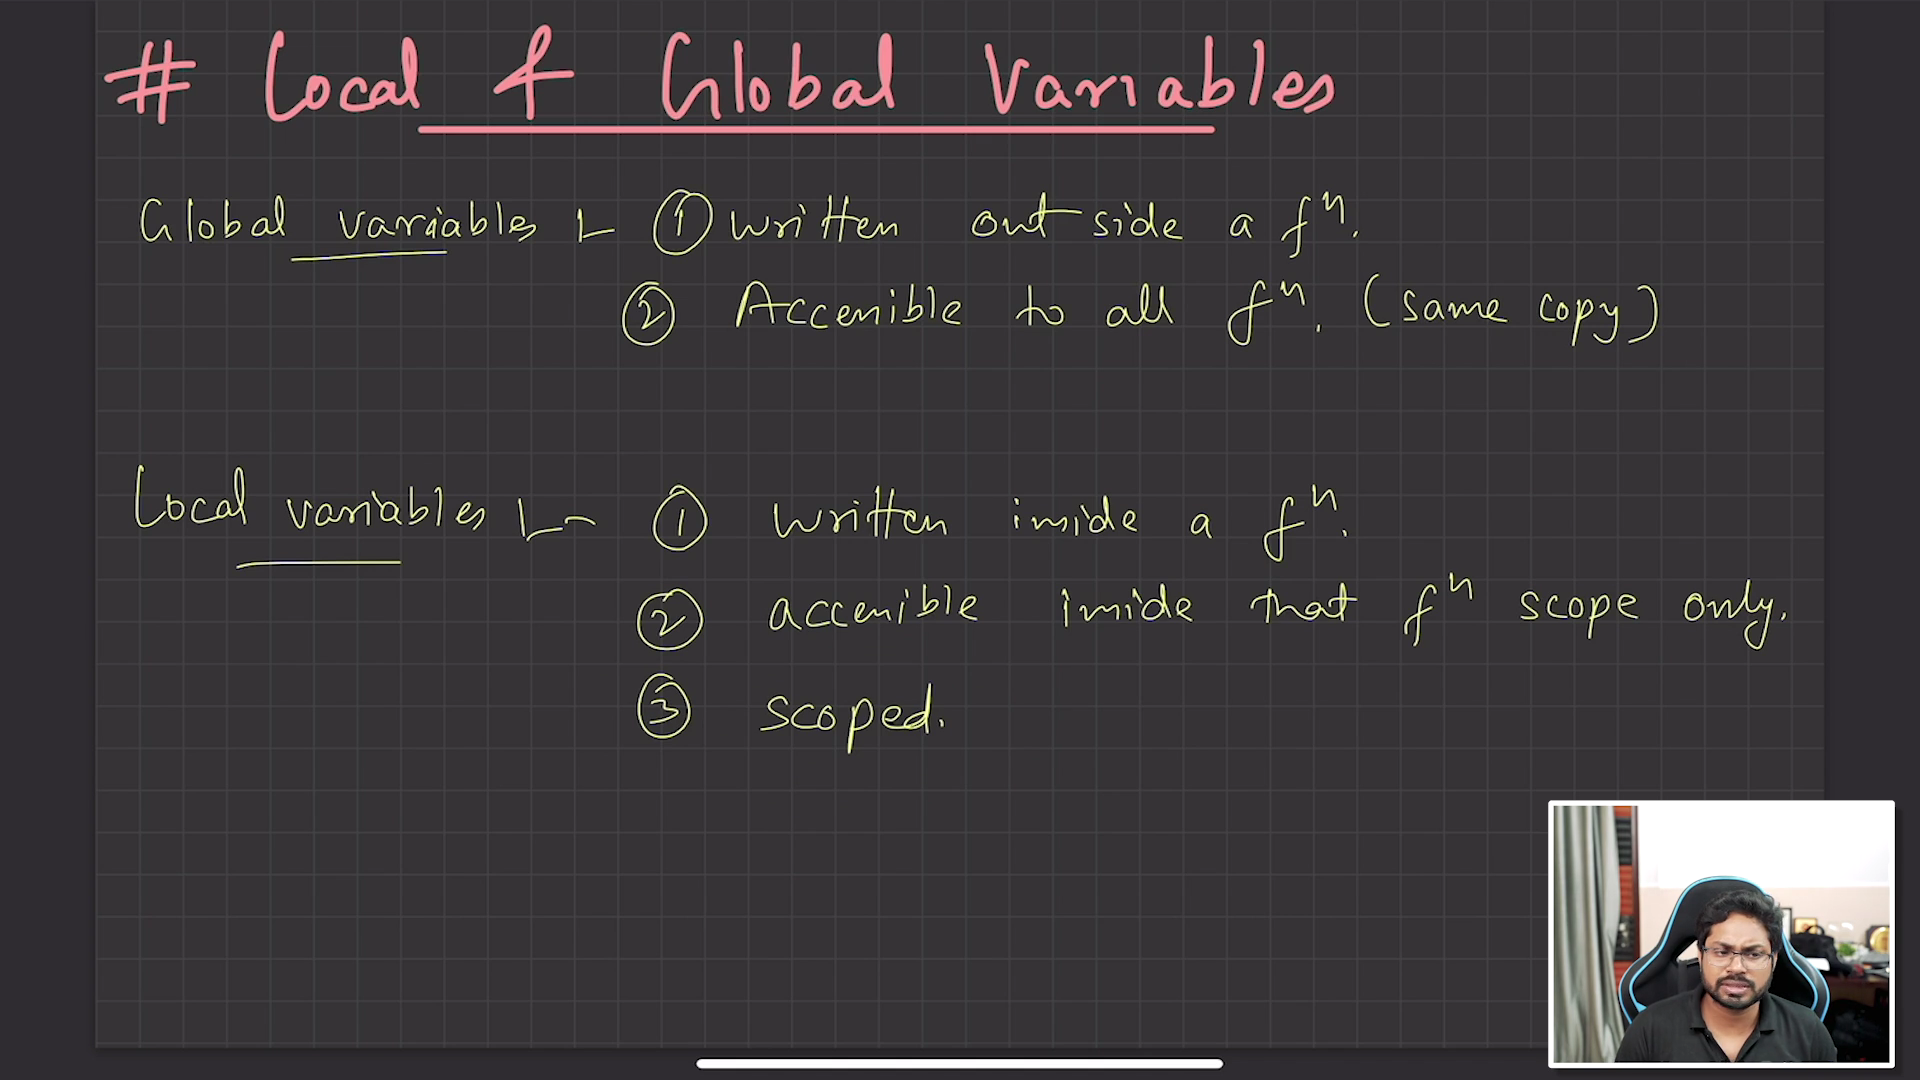 # Local & Global Variables
Global variables :- ① written outside a fⁿ.
② Accessible to all fⁿ. (same copy)
Local variables :- ① written inside a fⁿ.
② accessible inside that fⁿ scope only.
③ scoped.